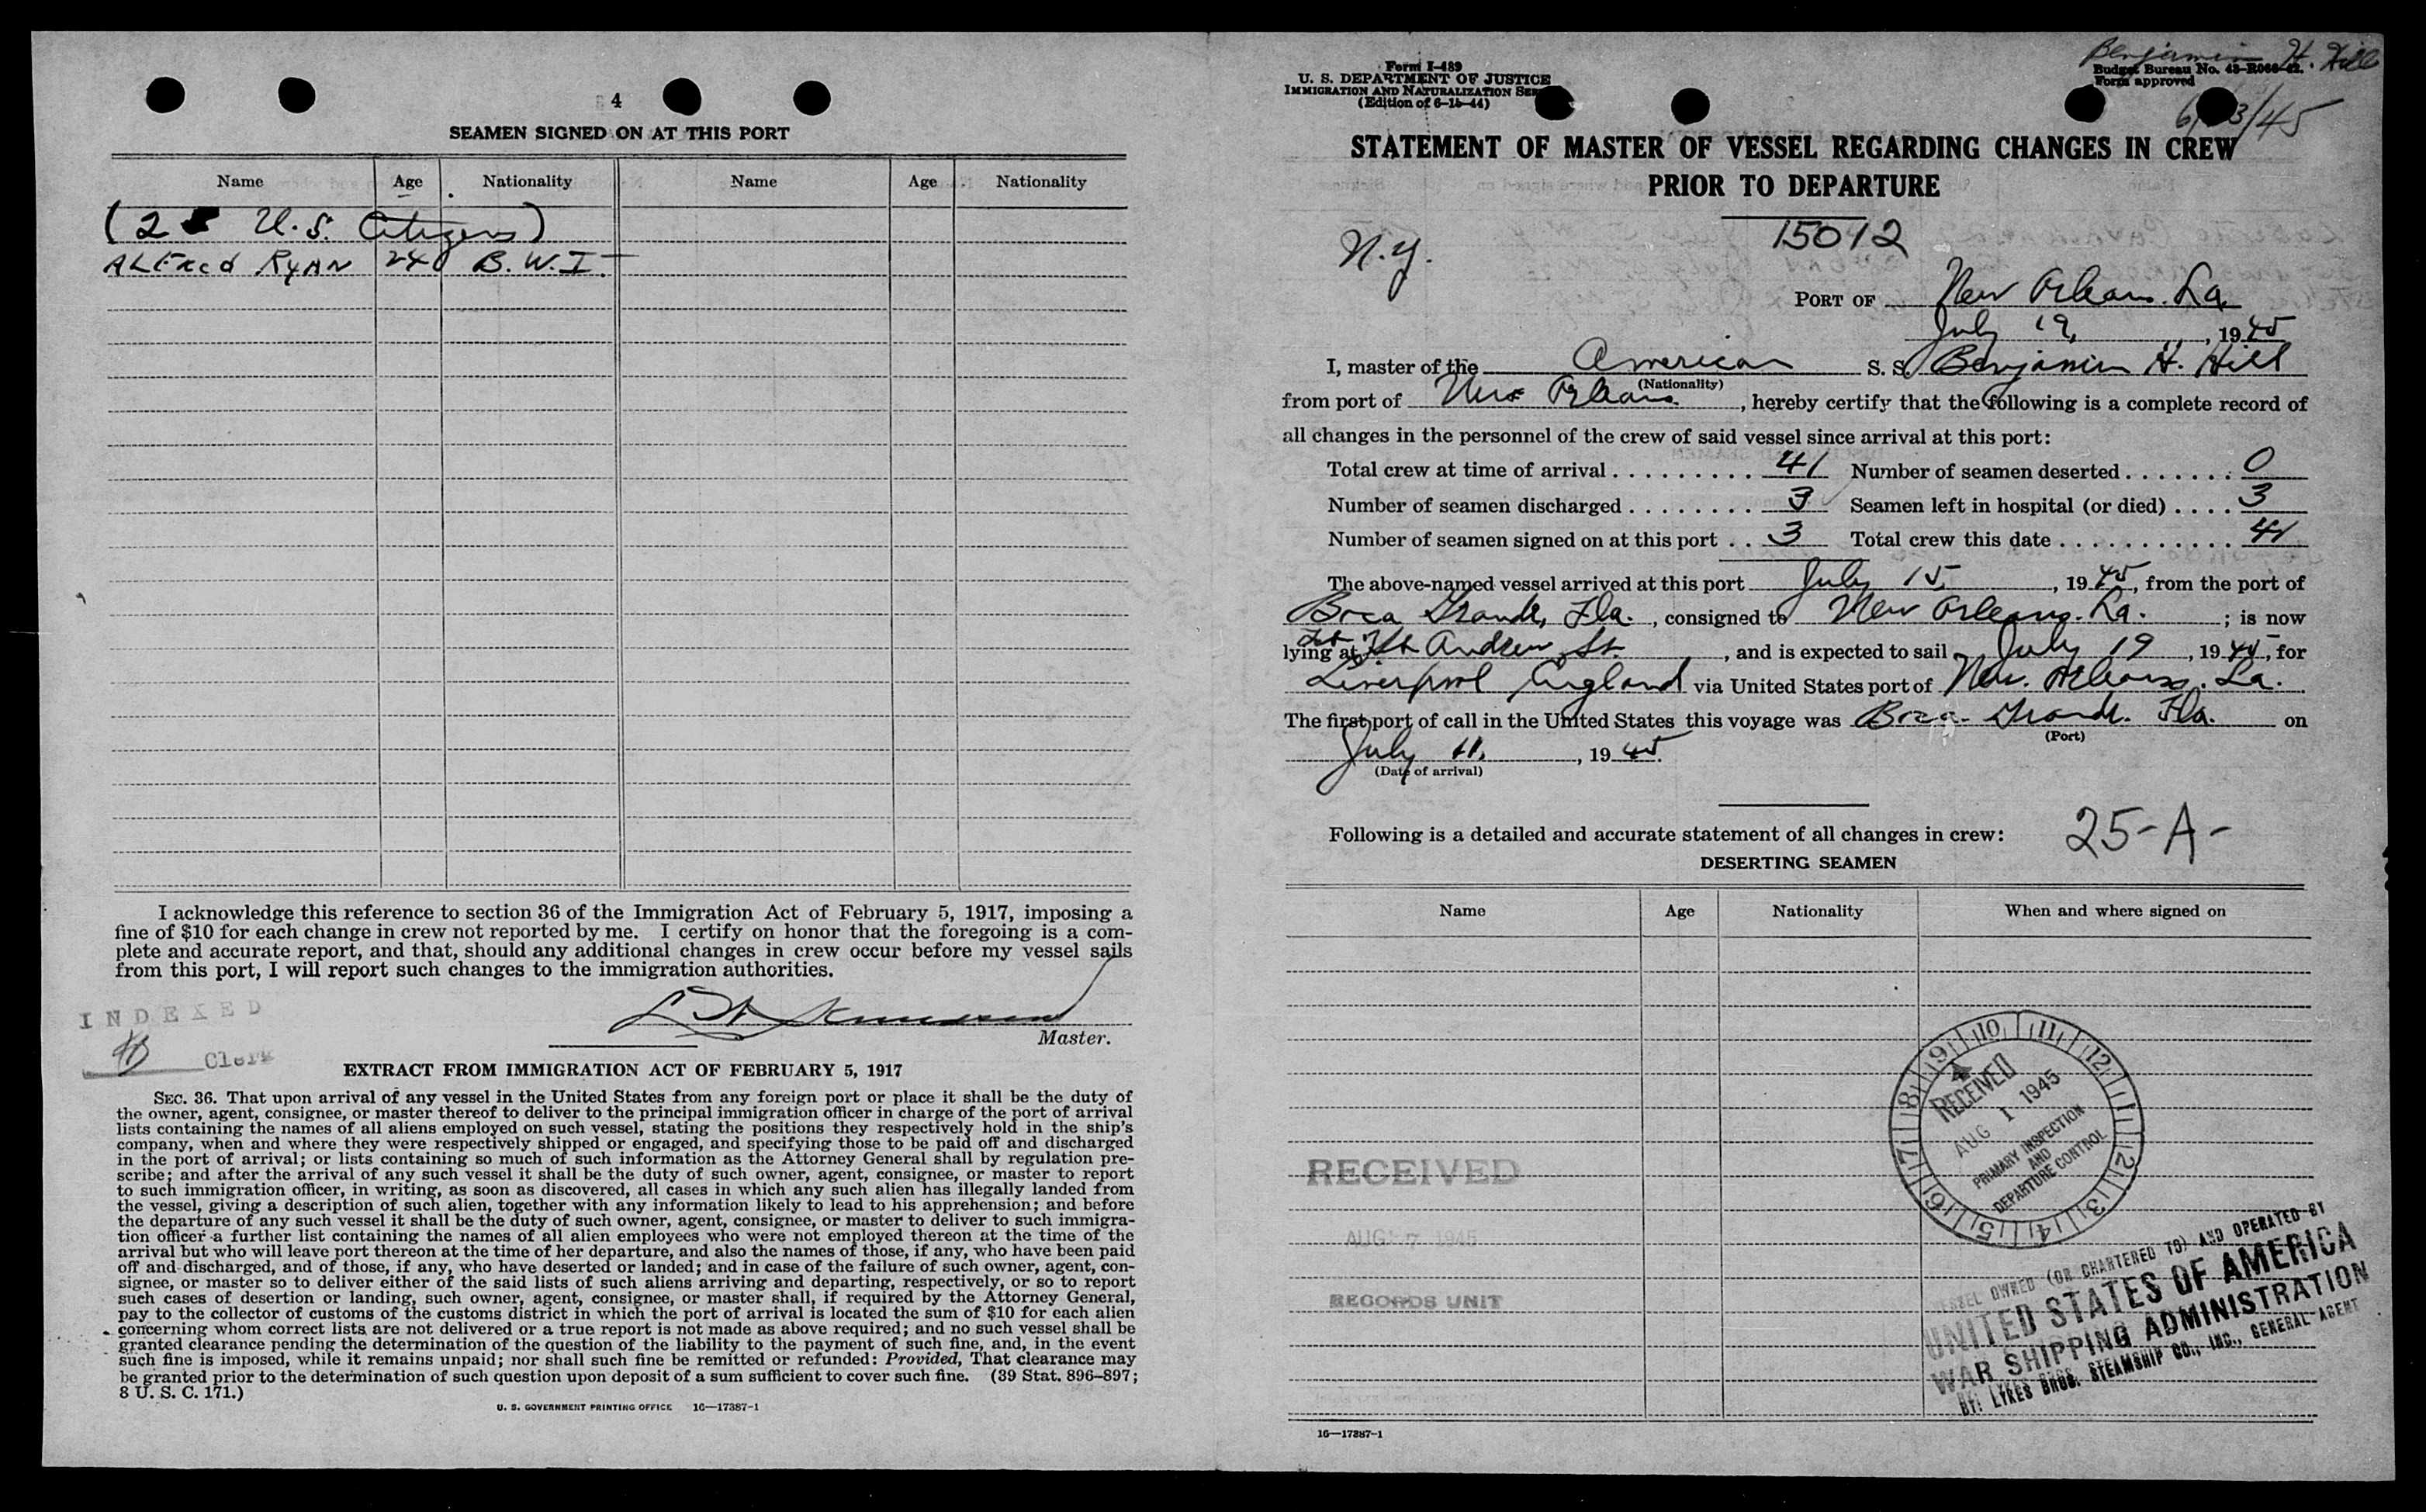 4
SEAMEN SIGNED ON AT THIS PORT
Name Age Nationality Name Age Nationality
(2 U.S. Citizens)
ALFRED RYAN 24 B.W.I.
I acknowledge this reference to section 36 of the Immigration Act of February 5, 1917, imposing a
fine of $10 for each change in crew not reported by me. I certify on honor that the foregoing is a com-
plete and accurate report, and that, should any additional changes in crew occur before my vessel sails
from this port, I will report such changes to the immigration authorities.
INDEXED
Master.
Clerk
EXTRACT FROM IMMIGRATION ACT OF FEBRUARY 5, 1917
SEC. 36. That upon arrival of any vessel in the United States from any foreign port or place it shall be the duty of
the owner, agent, consignee, or master thereof to deliver to the principal immigration officer in charge of the port of arrival
lists containing the names of all aliens employed on such vessel, stating the positions they respectively hold in the ship's
company, when and where they were respectively shipped or engaged, and specifying those to be paid off and discharged
in the port of arrival; or lists containing so much of such information as the Attorney General shall by regulation pre-
scribe; and after the arrival of any such vessel it shall be the duty of such owner, agent, consignee, or master to report
to such immigration officer, in writing, as soon as discovered, all cases in which any such alien has illegally landed from
the vessel, giving a description of such alien, together with any information likely to lead to his apprehension; and before
the departure of any such vessel it shall be the duty of such owner, agent, consignee, or master to deliver to such immigra-
tion officer a further list containing the names of all alien employees who were not employed thereon at the time of the
arrival but who will leave port thereon at the time of her departure, and also the names of those, if any, who have been paid
off and discharged, and of those, if any, who have deserted or landed; and in case of the failure of such owner, agent, con-
signee, or master so to deliver either of the said lists of such aliens arriving and departing, respectively, or so to report
such cases of desertion or landing, such owner, agent, consignee, or master shall, if required by the Attorney General,
pay to the collector of customs of the customs district in which the port of arrival is located the sum of $10 for each alien
concerning whom correct lists are not delivered or a true report is not made as above required; and no such vessel shall be
granted clearance pending the determination of the question of the liability to the payment of such fine, and, in the event
such fine is imposed, while it remains unpaid; nor shall such fine be remitted or refunded: Provided, That clearance may
be granted prior to the determination of such question upon deposit of a sum sufficient to cover such fine. (39 Stat. 896–897;
8 U. S. C. 171.)
U. S. GOVERNMENT PRINTING OFFICE 16—17387-1
Benjamin H. Hill
Form I-489
U. S. DEPARTMENT OF JUSTICE
IMMIGRATION AND NATURALIZATION
(Edition of 6-15-44)
Budget Bureau No.
Form approved
STATEMENT OF MASTER OF VESSEL REGARDING CHANGES IN CREW
PRIOR TO DEPARTURE
15012
N.Y.
PORT OF New Orleans. La.
July 19, 1945
I, master of the American S. S. Benjamin H. Hill
(Nationality)
from port of New Orleans, hereby certify that the following is a complete record of
all changes in the personnel of the crew of said vessel since arrival at this port:
Total crew at time of arrival 41 Number of seamen deserted 0
Number of seamen discharged 3 Seamen left in hospital (or died) 3
Number of seamen signed on at this port 3 Total crew this date 41
The above-named vessel arrived at this port July 15, 1945, from the port of
Boca Grande, Fla., consigned to New Orleans. La.; is now
lying at St Andrew St., and is expected to sail July 19, 1945, for
Liverpool England via United States port of New Orleans. La.
The first port of call in the United States this voyage was Boca Grande. Fla. on
(Port)
July 11, 1945.
(Date of arrival)
Following is a detailed and accurate statement of all changes in crew: 25-A-
DESERTING SEAMEN
Name Age Nationality When and where signed on
10 11 12 1 2 3 4 5 6 7 8 9
RECEIVED
AUG 1 1945
PRIMARY INSPECTION
AND
DEPARTURE CONTROL
RECEIVED
AUG 7 1945
RECORDS UNIT
VESSEL OWNED (OR CHARTERED TO) AND OPERATED BY
UNITED STATES OF AMERICA
WAR SHIPPING ADMINISTRATION
BY: LYKES BROS. STEAMSHIP CO., INC., GENERAL AGENT
16—17387-1